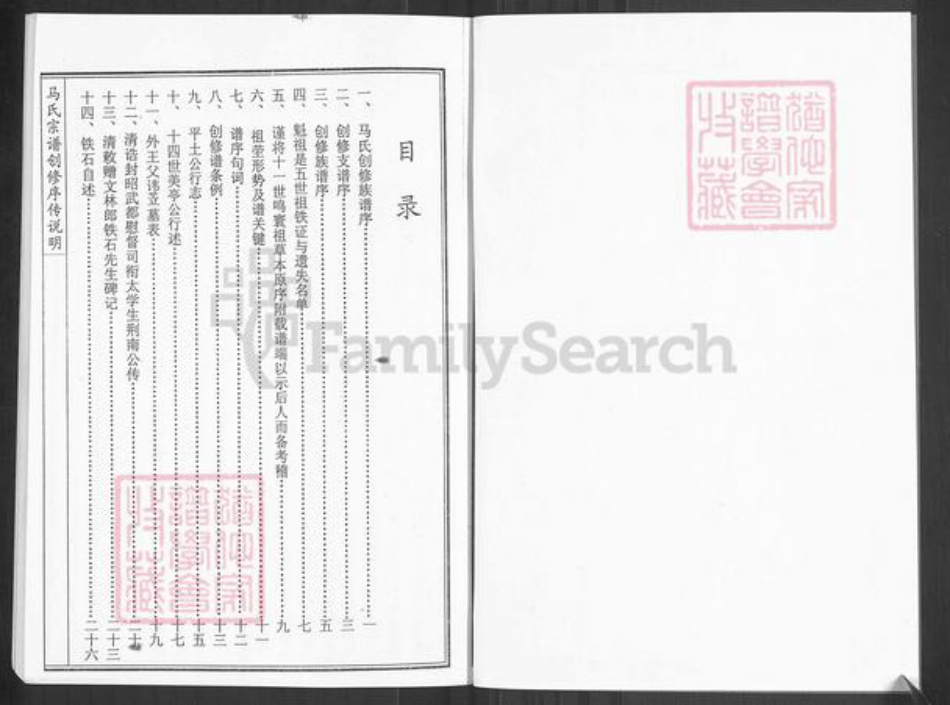 目录
一、马氏创修族谱序 一
二、创修支谱序 三
三、创修族谱序 五
四、魁祖是五世祖铁证与遗失名单 七
五、谨将十一世鸣寰祖草本原序附载谱端以示后人而备考稽 九
六、祖茔形势及谱关键 十一
七、谱序句词 十二
八、创修谱条例 十三
九、平土公行志 十五
十、十四世美亭公行述 十七
十一、外王父讳苙墓表 十九
十二、清诰封昭武都慰督司衔太学生荆南公传 二十
十三、清敕赠文林郎铁石先生碑记 二十三
十四、铁石自述 二十六
马氏宗谱创修序传说明
FamilySearch